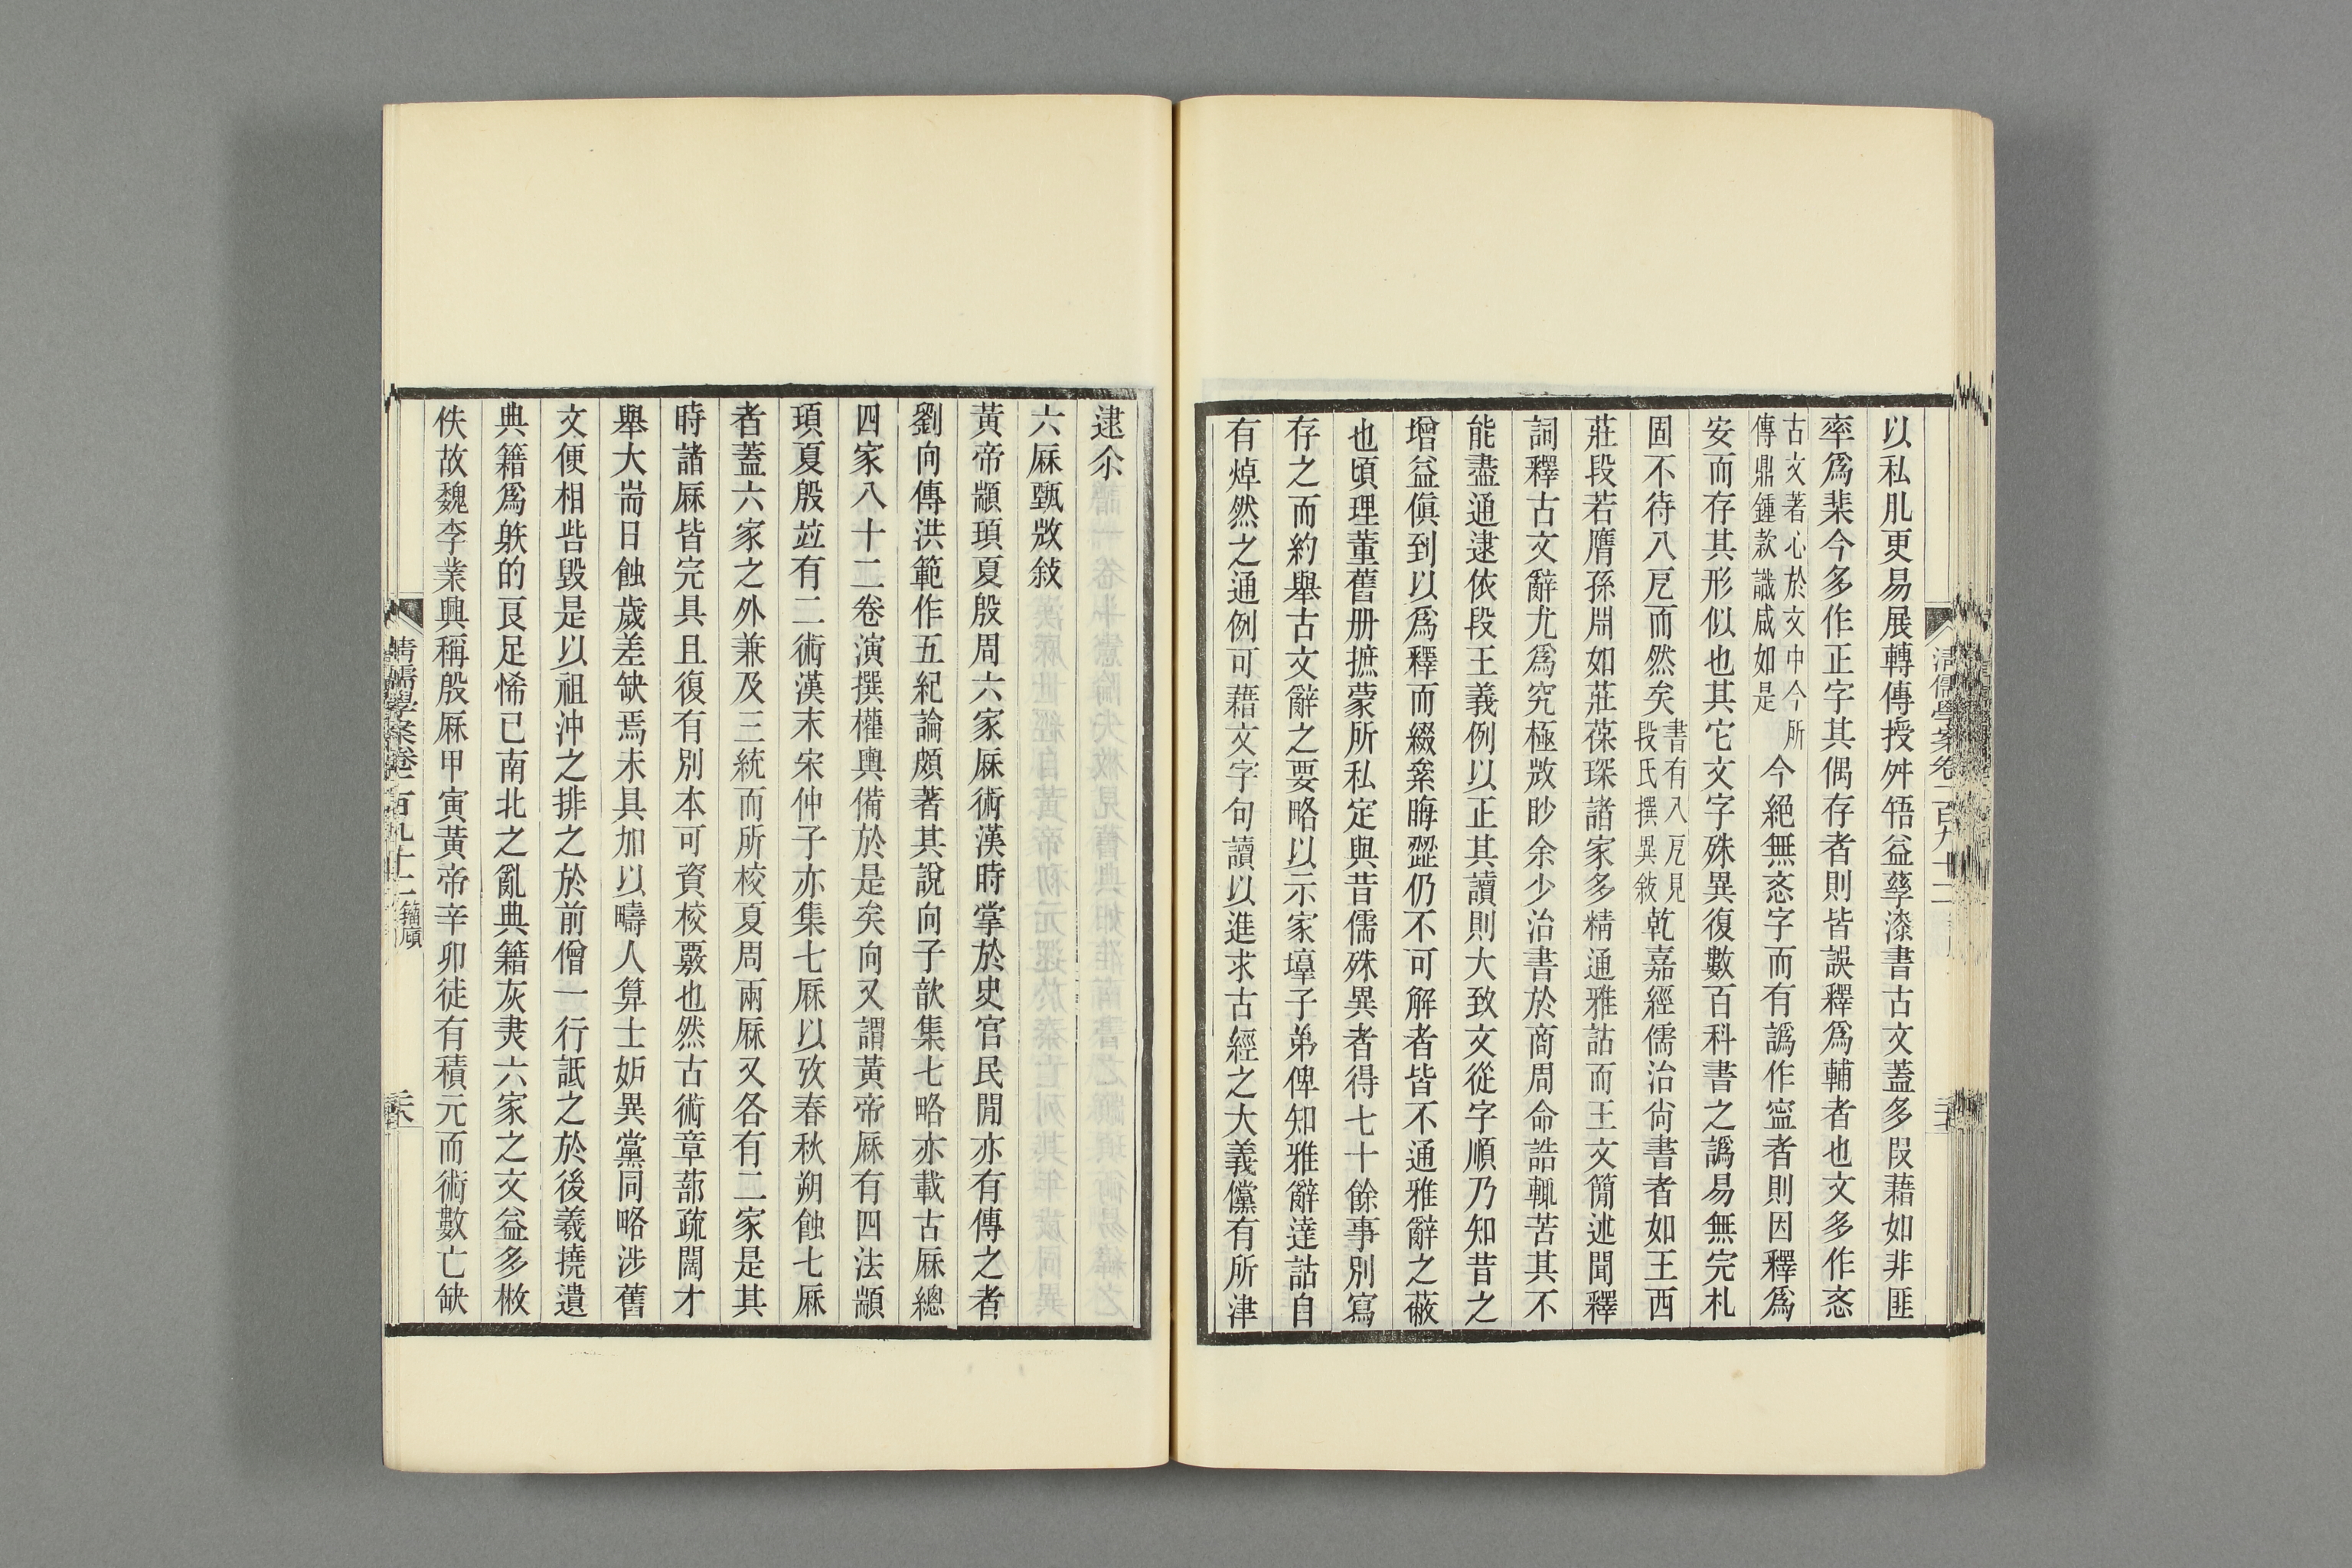 以私肊更易展轉傳授舛牾益孳漆書古文蓋多叚藉如非匪
率爲棐今多作正字其偶存者則皆誤釋爲輔者也文多作忞
古文著心於文中今所
傳鼎鍾款識咸如是
今絕無忞字而有譌作寍者則因釋爲
安而存其形似也其它文字殊異復數百科書之譌易無完札
固不待八厄而然矣
書有八厄見
段氏撰異敍
乾嘉經儒治尙書者如王西
莊段若膺孫淵如莊葆琛諸家多精通雅詁而王文簡述聞釋
詞釋古文辭尤爲究極敚眇余少治書於商周命誥輒苦其不
能盡通逮依段王義例以正其讀則大致文從字順乃知昔之
增益傎到以爲釋而綴粊晦澀仍不可解者皆不通雅辭之蔽
也頃理董舊册摭蒙所私定與昔儒殊異者得七十餘事別寫
存之而約舉古文辭之要略以示家塾子弟俾知雅辭達詁自
有焯然之通例可藉文字句讀以進求古經之大義儻有所津
逮尒
六厤甄敚敍
黃帝顓頊夏殷周六家厤術漢時掌於史官民閒亦有傳之者
劉向傳洪範作五紀論頗著其說向子歆集七略亦載古厤總
四家八十二卷演撰權輿備於是矣向又謂黃帝厤有四法顓
頊夏殷竝有二術漢末宋仲子亦集七厤以攷春秋朔蝕七厤
者蓋六家之外兼及三統而所校夏周兩厤又各有二家是其
時諸厤皆完具且復有別本可資校覈也然古術章蔀疏闊才
舉大耑日蝕歲差缺焉未具加以疇人算士妒異黨同略涉舊
文便相呰毀是以祖沖之排之於前僧一行詆之於後羲撓遺
典籍爲躲的㫐足悕已南北之亂典籍灰夷六家之文益多㪇
佚故魏李業興稱殷厤甲寅黃帝辛卯徒有積元而術數亡缺
清儒學案卷一百九十二
清儒學案卷一百九十二 籀廎
二十六